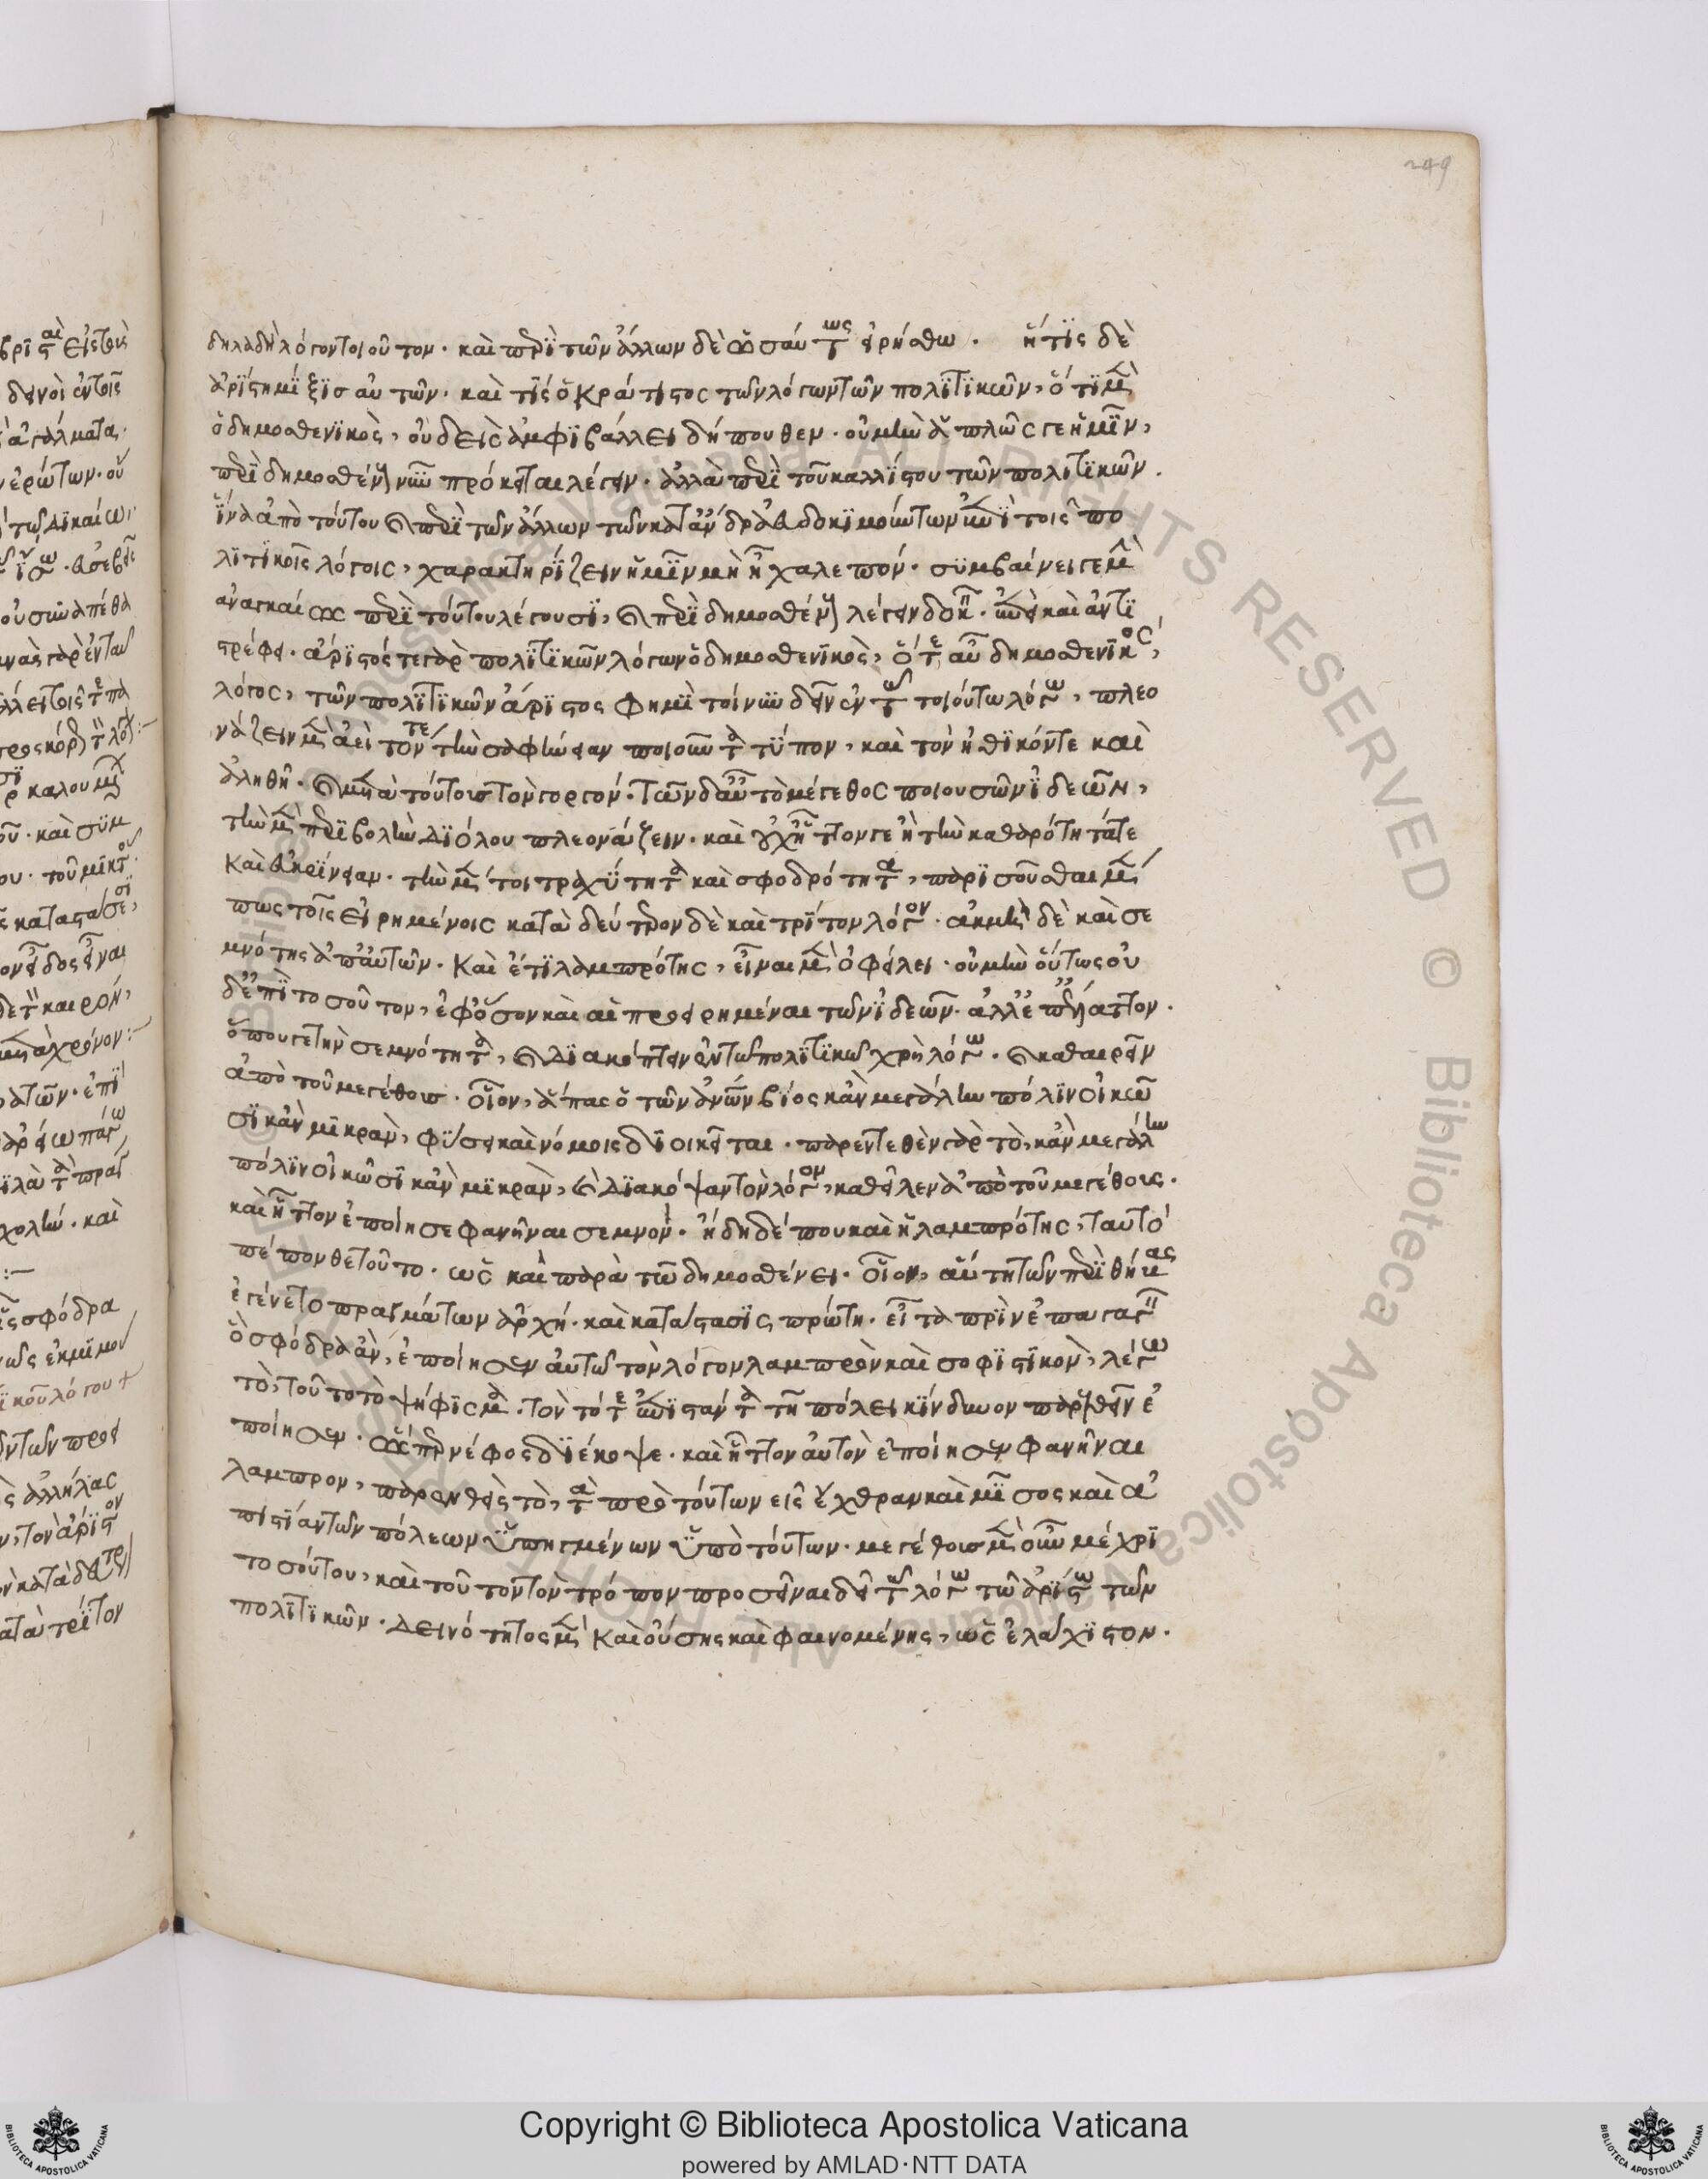 249
δηλαδὴ λόγον τοιοῦτον. καὶ περὶ τῶν ἄλλων δὲ ὡσαύτως εἰρήσθω. ἥτις δὲ
ἀρίστη μῖξις αὐτῶν. καὶ τίς ὁ κράτιστος τῶν λόγων τῶν πολιτικῶν, ὅτι μὲν
ὁ δημοσθενικὸς, οὐδεὶς ἀμφιβάλλει δήπουθεν. οὐ μὴν ἁπλῶς γε ἡμῖν,
περὶ δημοσθένους νῦν πρόκειται λέγειν. ἀλλὰ περὶ τοῦ καλλίστου τῶν πολιτικῶν.
ἵνα ἀπὸ τούτου καὶ περὶ τῶν ἄλλων τῶν κατ' ἄνδρα εὐδοκιμούντων ἐπὶ τοῖς πο
λιτικοῖς λόγοις, χαρακτηρίζειν ἡμῖν μὴ ᾖ χαλεπόν. συμβαίνει γε μὴν
ἀναγκαίως περὶ τούτου λέγουσι, καὶ περὶ δημοσθένους λέγειν δοκεῖν. ἐπεὶ καὶ ἀντι
στρέφει. ἄριστός τε γὰρ πολιτικῶν λόγων ὁ δημοσθενικὸς, ὅ τε αὖ δημοσθενικὸς,
λόγος, τῶν πολιτικῶν ἄριστος φημὶ τοίνυν δεῖν ἐν τῷ τοιούτω λόγω, πλεο
νάζειν μὲν ἀεὶ τόν τε τὴν σαφήνειαν ποιοῦντα τύπον, καὶ τὸν ἠθικόν τε καὶ
ἀληθῆ. καὶ μετὰ τούτους τὸν γοργόν. τῶν δ' αὖ τὸ μέγεθος ποιουσῶν ἰδεῶν,
τὴν μὲν περιβολὴν διόλου πλεονάζειν. καὶ οὐχ ἧττόν γε ἢ τὴν καθαρότητά τε
καὶ εὐκρίνειαν. τὴν μέντοι τραχύτητα καὶ σφοδρότητα, παρισοῦσθαι μέν
πως τοῖς εἰρημένοις κατὰ δεύτερον δὲ καὶ τρίτον λόγον. ἀκμὴ δὲ καὶ σε
μνότης ἀπ' αὐτῶν. καὶ ἔτι λαμπρότης, εἶναι μὲν ὀφείλει. οὐ μὴν οὕτως οὐ
δ' ἐπὶ τοσοῦτον, ἐφ' ὅσον καὶ αἱ προειρημέναι τῶν ἰδεῶν. ἀλλ' ἐπ' ἔλαττον.
ὅπου γε τὴν σεμνότητα, καὶ διακόπτειν ἐν τῶ πολιτικῶ χρὴ λόγω. καὶ καθαιρεῖν
ἀπὸ τοῦ μεγέθους. οἷον, ἅπας ὁ τῶν ἀνθρώπων βίος κἂν μεγάλην πόλιν οἰκῶ
σι κἂν μικρὰν, φύσει καὶ νόμοις διοικεῖται. παρεντεθὲν γὰρ τὸ, κἂν μεγάλην
πόλιν οἰκῶσι κἂν μικρὰν, καὶ διακόψαν τὸν λόγον, καθεῖλεν ἀπὸ τοῦ μεγέθους.
καὶ ἧττον ἐποίησε φανῆναι σεμνόν. ἤδη δέ που καὶ ἡ λαμπρότης, ταυτὸ
πέπονθε τοῦτο. ὡς καὶ παρὰ τῶ δημοσθένει. οἷον, αὕτη τῶν περὶ θήβας
ἐγένετο πραγμάτων ἀρχή. καὶ κατάστασις πρώτη. εἶτα πρὶν ἐπαγαγεῖν
ὃ σφόδρα ἂν, ἐποίησεν αὐτῶ τὸν λόγον λαμπρὸν καὶ σοφιστικὸν, λέγω
τὸ, τοῦτο τὸ ψήφισμα. τὸν τότε ἐπιστάντα τῇ πόλει κίνδυνον παρελθεῖν ἐ
ποίησεν. ὥσπερ νέφος διέκοψε. καὶ ἧττον αὐτὸν ἐποίησεν φανῆναι
λαμπρον, παρενθεὶς τὸ, τὰ πρὸ τούτων εἰς ἔχθραν καὶ μῖσος καὶ ἀ
πιστίαν τῶν πόλεων ὑπηγμένων ὑπὸ τούτων. μεγέθους μὲν οὖν μέχρι
τοσούτου, καὶ τοῦτον τὸν τρόπον προσεῖναι δεῖ τῷ λόγω τῶ ἀρίστω τῶν
πολιτικῶν. δεινότητος μὲν καὶ οὔσης καὶ φαινομένης, ὡς ἐλάχιστον.
Copyright © Biblioteca Apostolica Vaticana
powered by AMLAD·NTT DATA